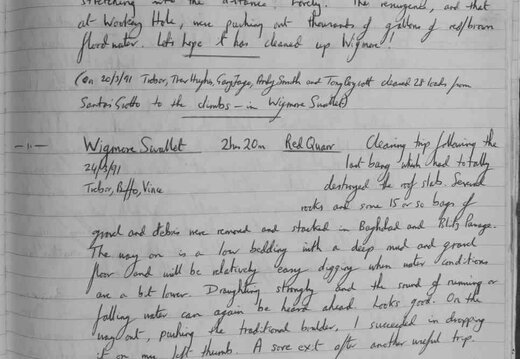 stretching into the distance. Lovely. The resurgence, and that
at Wookey Hole, were pushing out thousands of gallons of red/brown
flood water. Lets hope it has cleaned up Wigmore!
(On 20/3/91 Trebor, Trev Hughes, Gary Jago, Andy Smith and Tony Boycott cleared 28 loads from
Santas Grotto to the climbs - in Wigmore Swallet)
-1- Wigmore Swallet 2hrs 20m Red Quarr Clearing trip following the
24/3/91 last bang which had totally
Trebor, Buffo, Vince destroyed the roof slab. Several
rocks and some 15 or so bags of
gravel and debris were removed and stacked in Baghdad and Blitz Passage.
The way on is a low bedding with a deep mud and gravel
floor and will be relatively easy digging when water conditions
are a bit lower. Draughting strongly and the sound of running or
falling water can again be heard ahead. Looks good. On the
way out, pushing the traditional boulder, I succeeded in dropping
it on my left thumb. A sore exit after another useful trip.